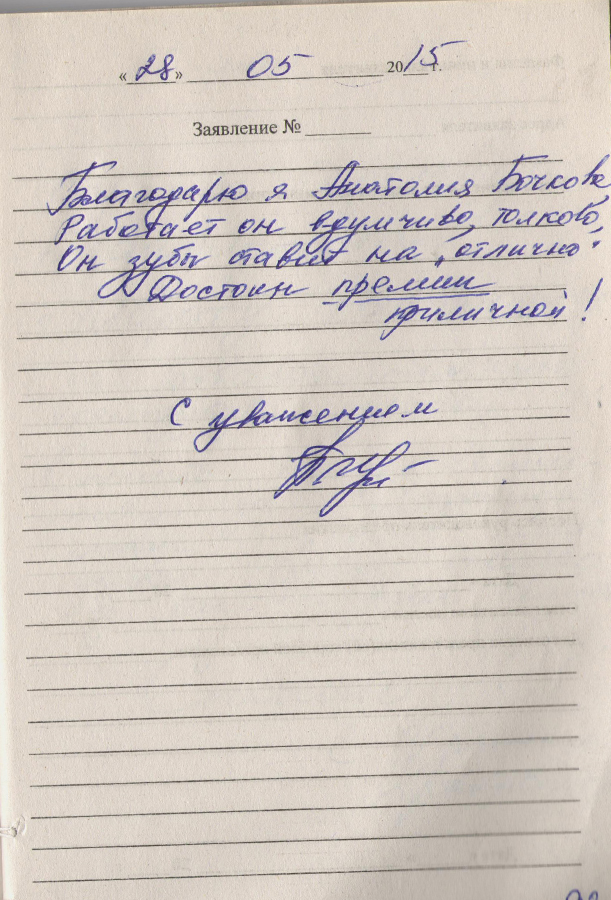 «28» 05 2015 г.
Заявление № ______
Благодарю я Анатолия Бочкова,
Работает он вдумчиво, толково,
Он зубы ставит на „отлично“
Достоин премии
приличной!
С уважением